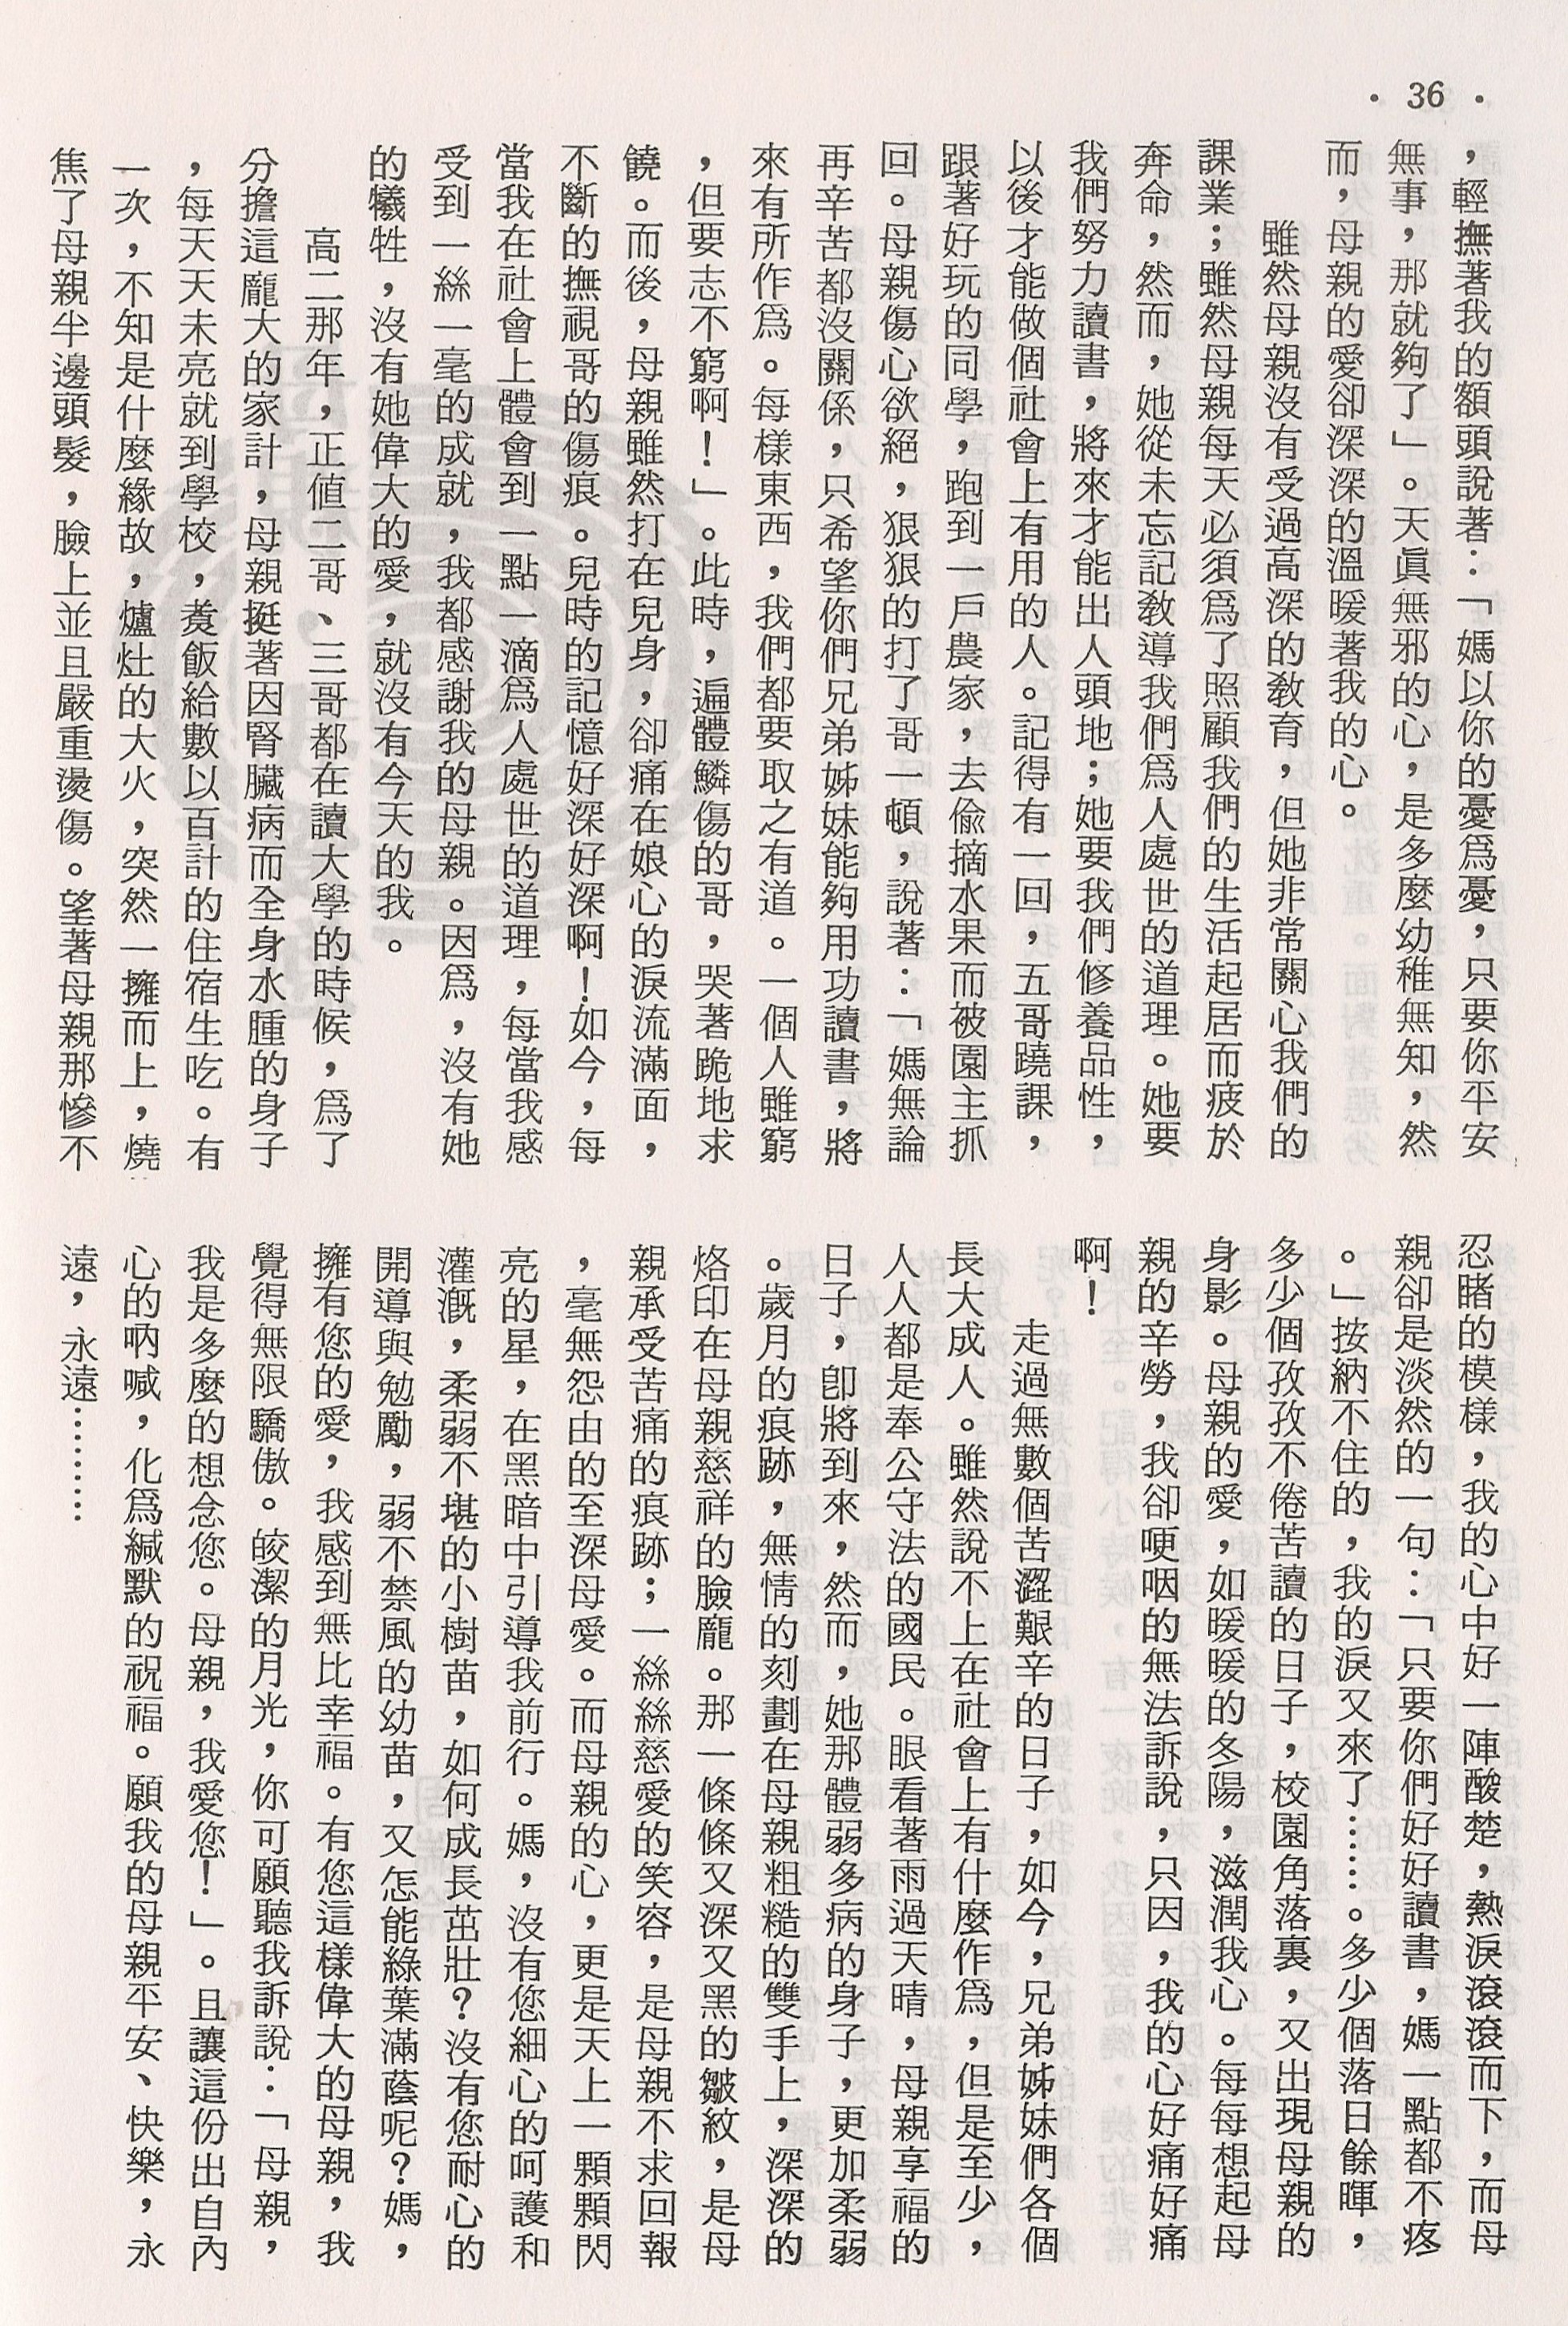 · 36 ·
，輕撫著我的額頭說著：「媽以你的憂爲憂，只要你平安
無事，那就夠了」。天眞無邪的心，是多麼幼稚無知，然
而，母親的愛卻深深的溫暖著我的心。
雖然母親沒有受過高深的敎育，但她非常關心我們的
課業；雖然母親每天必須爲了照顧我們的生活起居而疲於
奔命，然而，她從未忘記敎導我們爲人處世的道理。她要
我們努力讀書，將來才能出人頭地；她要我們修養品性，
以後才能做個社會上有用的人。記得有一回，五哥蹺課，
跟著好玩的同學，跑到一戶農家，去偸摘水果而被園主抓
回。母親傷心欲絕，狠狠的打了哥一頓，說著：「媽無論
再辛苦都沒關係，只希望你們兄弟姊妹能夠用功讀書，將
來有所作爲。每樣東西，我們都要取之有道。一個人雖窮
，但要志不窮啊！」。此時，遍體鱗傷的哥，哭著跪地求
饒。而後，母親雖然打在兒身，卻痛在娘心的淚流滿面，
不斷的撫視哥的傷痕。兒時的記憶好深好深啊！如今，每
當我在社會上體會到一點一滴爲人處世的道理，每當我感
受到一絲一毫的成就，我都感謝我的母親。因爲，沒有她
的犧牲，沒有她偉大的愛，就沒有今天的我。
高二那年，正値二哥、三哥都在讀大學的時候，爲了
分擔這龐大的家計，母親挺著因腎臟病而全身水腫的身子
，每天天未亮就到學校，煑飯給數以百計的住宿生吃。有
一次，不知是什麼緣故，爐灶的大火，突然一擁而上，燒
焦了母親半邊頭髮，臉上並且嚴重燙傷。望著母親那慘不
忍睹的模樣，我的心中好一陣酸楚，熱淚滾滾而下，而母
親卻是淡然的一句：「只要你們好好讀書，媽一點都不疼
。」按納不住的，我的淚又來了……。多少個落日餘暉，
多少個孜孜不倦苦讀的日子，校園角落裏，又出現母親的
身影。母親的愛，如暖暖的冬陽，滋潤我心。每每想起母
親的辛勞，我卻哽咽的無法訴說，只因，我的心好痛好痛
啊！
走過無數個苦澀艱辛的日子，如今，兄弟姊妹們各個
長大成人。雖然說不上在社會上有什麼作爲，但是至少，
人人都是奉公守法的國民。眼看著雨過天晴，母親享福的
日子，卽將到來，然而，她那體弱多病的身子，更加柔弱
。歲月的痕跡，無情的刻劃在母親粗糙的雙手上，深深的
烙印在母親慈祥的臉龐。那一條條又深又黑的皺紋，是母
親承受苦痛的痕跡；一絲絲慈愛的笑容，是母親不求回報
，毫無怨由的至深母愛。而母親的心，更是天上一顆顆閃
亮的星，在黑暗中引導我前行。媽，沒有您細心的呵護和
灌漑，柔弱不堪的小樹苗，如何成長茁壯？沒有您耐心的
開導與勉勵，弱不禁風的幼苗，又怎能綠葉滿蔭呢？媽，
擁有您的愛，我感到無比幸福。有您這樣偉大的母親，我
覺得無限驕傲。皎潔的月光，你可願聽我訴說：「母親，
我是多麼的想念您。母親，我愛您！」。且讓這份出自內
心的吶喊，化爲緘默的祝福。願我的母親平安、快樂，永
遠，永遠…………